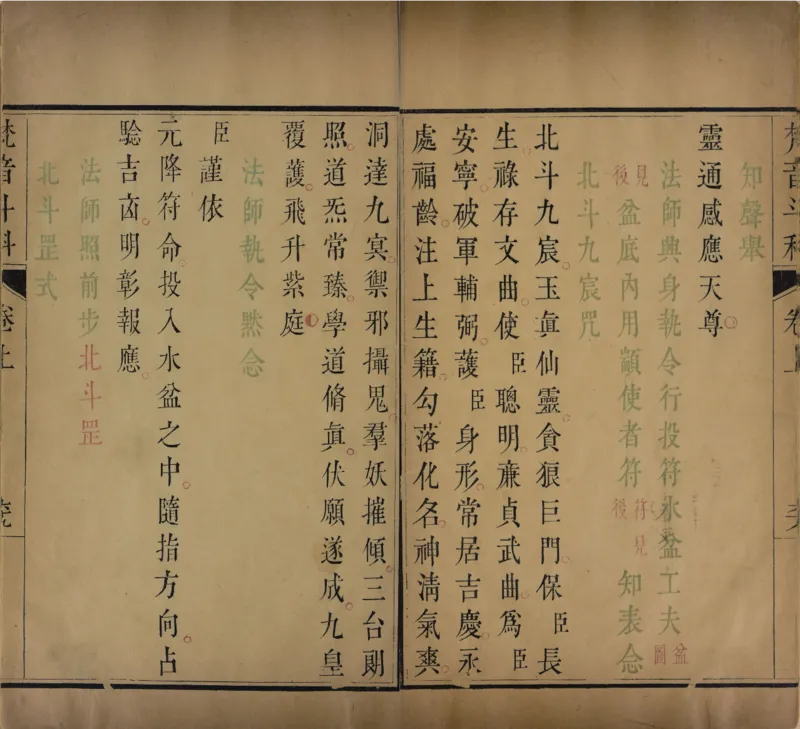 梵音斗科 卷上
知聲舉
靈通感應天尊
法師興身執令行投符水盆工夫 盆圖
見後盆底內用顓使者符 符見後 知表念
北斗九宸咒
北斗九宸。玉眞仙靈。貪狼巨門。保臣長
生。祿存文曲。使臣聰明。亷貞武曲。爲臣
安寧。破軍輔弼。護臣身形。常居吉慶。永
處福齡。注上生籍。勾落化名。神淸氣爽。
洞達九冥。禦邪攝鬼。羣妖摧傾。三台朗
照。道炁常臻。學道脩眞。伏願遂成。九皇
覆護。飛升紫庭
法師執令默念
臣謹依
元降符命。投入水盆之中。隨指方向。占
驗吉凶。明彰報應。
法師照前步北斗罡
北斗罡式
梵音斗科 卷上